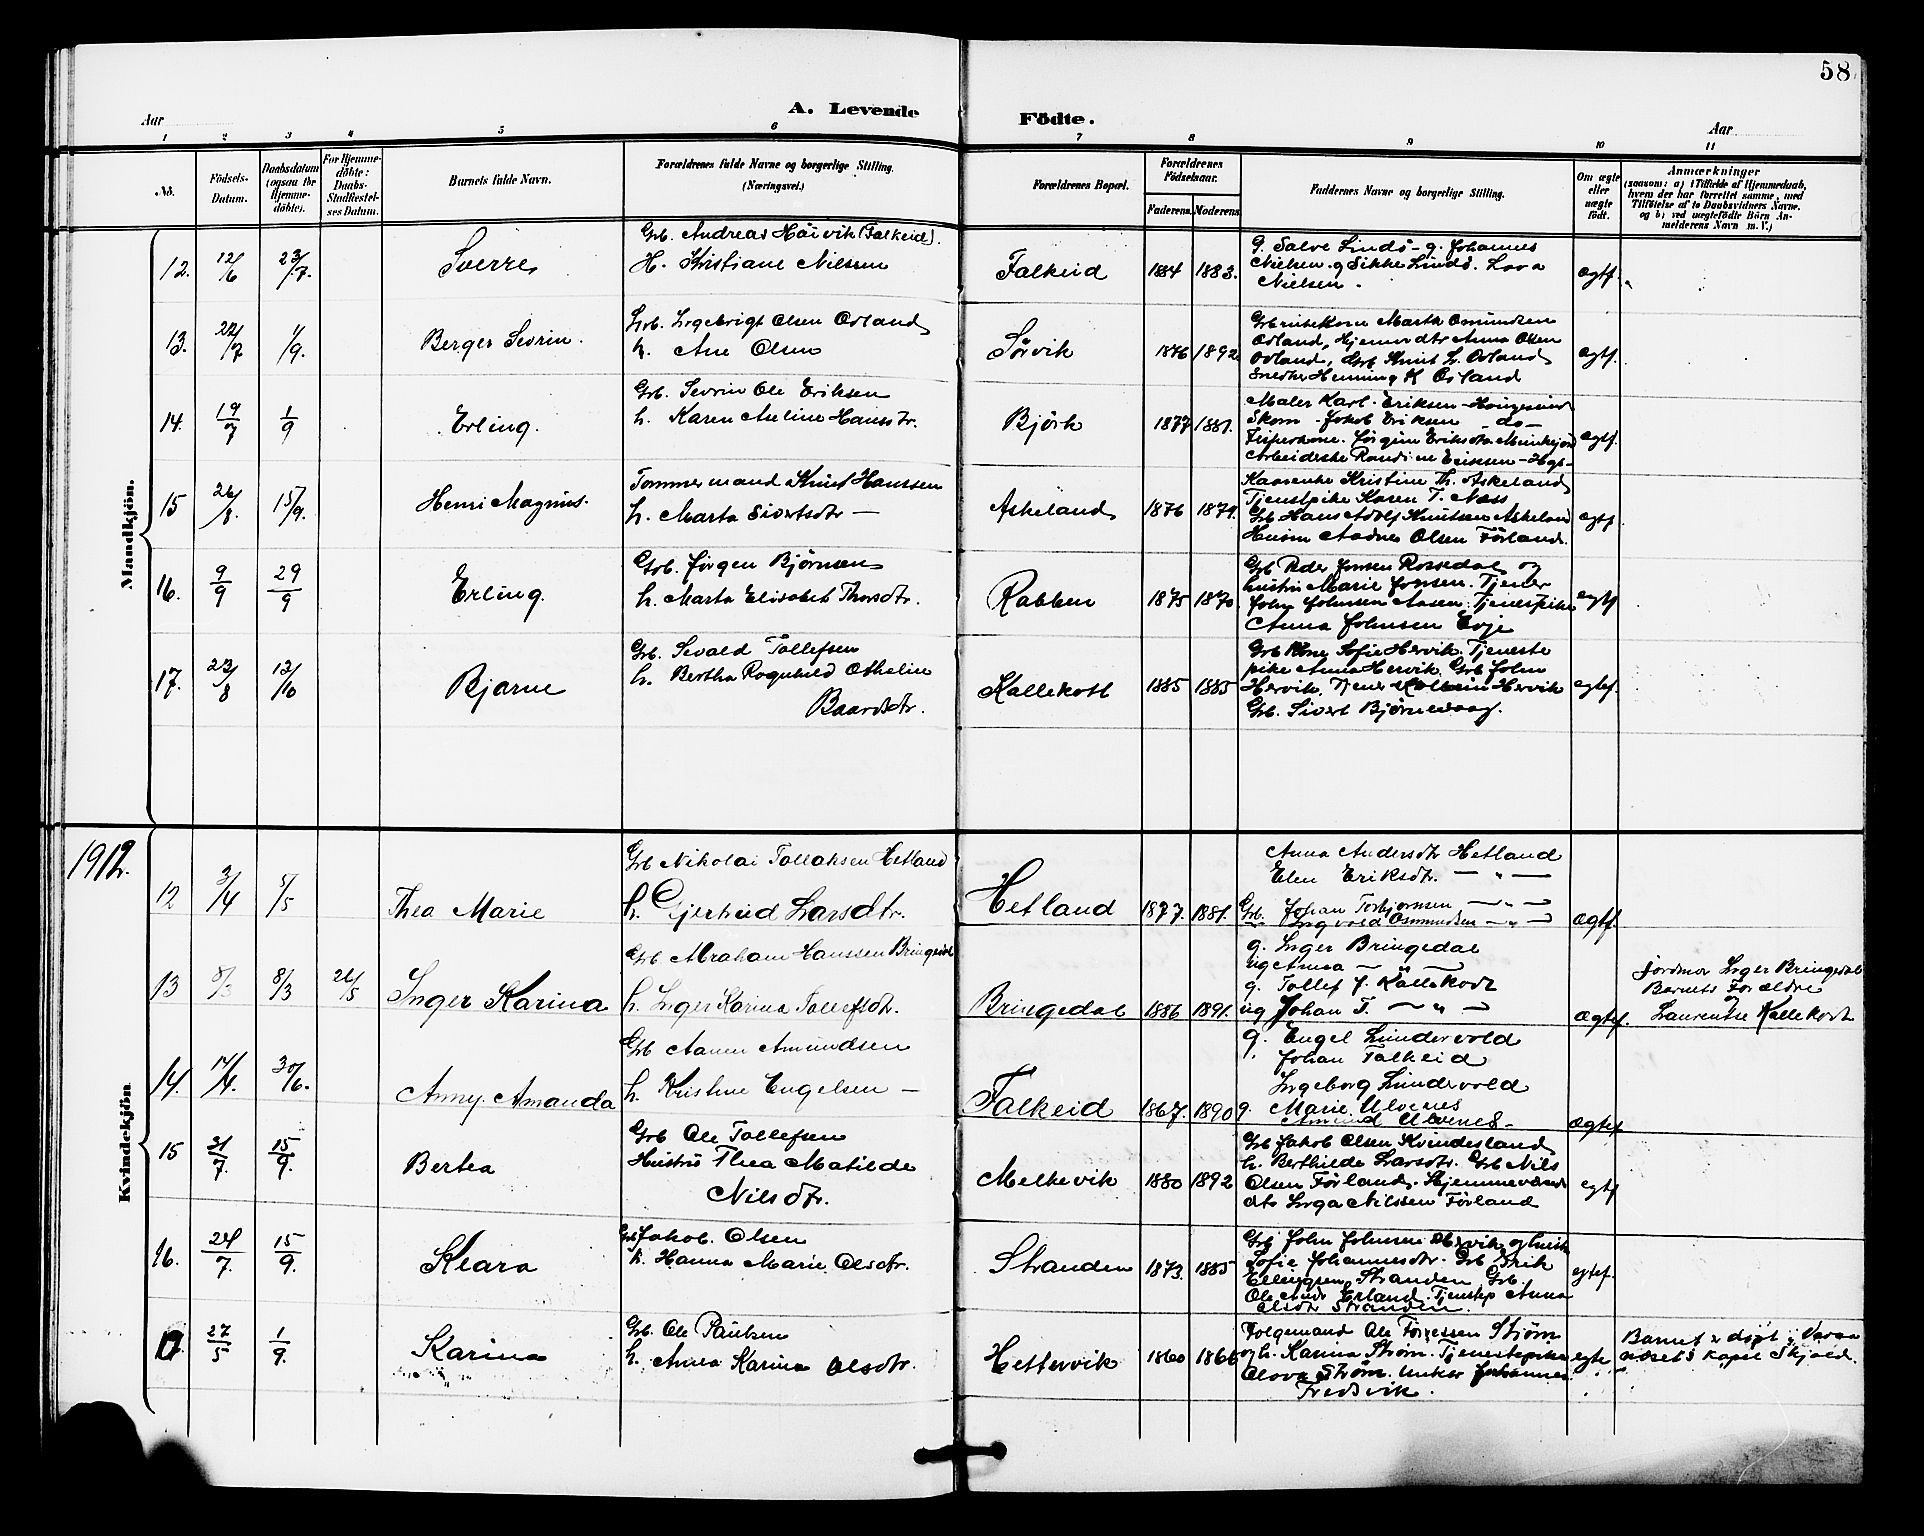 58
A. Levende Födte.
Aar
Aar
1 2 3 4 5 6 7 8 9 10 11
No.
Födsels-Datum.
Daabsdatum (ogsaa for Hjemme-döbte).
For Hjemme-döbte: Daabs-Stadfæstel-ses Datum.
Barnets fulde Navn.
Forældrenes fulde Navne og borgerlige Stilling.
(Næringsvei.)
Forældrenes Bopæl.
Forældrenes Födselsaar.
Faderens. Moderens.
Faddernes Navne og borgerlige Stilling.
Om ægte eller uægte födt.
Anmærkninger
(saasom: a) i Tilfælde af Hjemmedaab, hvem der har forrettet samme, med Tilföielse af to Daabsvidners Navne. og b) ved uægtefödte Börn An-melderens Navn m. V.)
Mandkjön.
12. 12/6 23/7. Sverre
Grb. Andreas Höivik (Falkeid).
H. Kristiane Nilssen
Falkeid 1884 1883.
G. Salve Lindö - g. Johannes
Nielsen. g Sikke Lindö. Lova
Nielsen.
ægtf.
13. 22/7 1/9. Berger Sevrin.
Grb. Ingebrigt Olsen Ovland
h. Ane Olsen
Sørvik 1876 1892
Marta Omundsen
Ovland, Anna Olsen
Ovland, Grb Knut L. Ovland
Snedker Henning K Ovland
ægtf.
14. 19/7 1/9 Erling.
Grb. Sevrin Ole Eriksen
h. Karen Aeline Hansdtr.
Björk 1877 1881.
Maler Karl Eriksen - Haugesund
Skom - Jakob Eriksen - do -
Fiskerkone. Jørgine Eriksdtr.
Arbeiderske Randine Eriksen - Hgs -
ægtf.
15 26/8. 15/9. Henri Magnus.
Tømmermand Knut Hanssen
h. Marta Sivertsdtr -
Askeland 1876 1879.
Kaarenke Kristine Th. Askeland
Tjenstpike Karen T. Næss
Grb Hans Adolf Knutsen Askeland
Aadne Olsen Førland.
ægtf.
16. 9/9 29/9 Erling.
Grb. Jørgen Bjørnsen
h. Marta Elisabet Thorsdtr.
Rabben 1875 1870.
Grb Peder Jonsen Rossedal og
hustru Marie Jonsen. Tjener
John Johnsen Aasen. Tjenestpike
Anna Johnsen Evje
ægtf
17. 23/8 13/10 Bjarne
Grb. Sevald Tollefsen
h. Bertha Rognhild Othelie
Baardsdtr.
Kallekott 1885 1885
Grb Kone Sofie Hervik. Tjeneste
pike Anna Hervik. Grb John
Hervik. Tjener Hervik
Grb. Sivert Bjørnevaag.
ægtef.
1912.
Kvindekjön
12 3/4 5/5 Thea Marie
Grb Nikolai Tollaksen Hetland
h. Gjertrud Larsdtr.
Hetland 1877. 1881.
Anna Andersdtr Hetland
Elen Eriksdtr. — " —
Grb. Johan Torbjørnsen — " —
Ingvald Osmundsen — " —
ægtf.
13 8/3 8/3 26/5 Inger Karina
Grb Abraham Hanssen Bringedal
h. Inger Karina Tollefsdtr.
Bringedal 1886 1891.
g. Inger Bringedal
ug Anna —
g. Tollef J. Kallekodt
ug Johan T. — " —
ægtef.
Jordmor Inger Bringedal
Barnets Forældre
og
Laurentse Kallekodt
14. 14/4. 30/6. Anny Amanda
Grb Aanen Amundsen
h. Kristine Engelsen —
Falkeid 1867. 1890
g. Engel Lundervold
Johan Falkeid
Ingeborg Lundervold
g. Marie Ulvenes
Amund Ulvenes -
ægtef
15 31/7. 15/9. Bertea
Grb Ole Tollefsen
Hustru Thea Matilde
Nilsdtr.
Melkevik 1880 1892
Grb Jakob Olsen Kvindesland
h. Berthilde Larsdtr. Grb Nils
Olsen Førland. Hjemmeværende
dtr Inga Nilssen Førland
egtf
16. 24/7. 15/9. Klara
Grb Jakob. Olsen
h. Hanna Marie Olsdtr.
Stranden 1873. 1885
Grb John Johnsen Hervik og hustr
Sofie Johannesdtr. Grb Erik
Ellingsen Stranden Grb.
Ole Ands Erland. Tjenstep Anna
Olsdtr Stranden.
egtef.
17. 27/5 1/9. Karina
Grb. Ole Paulsen
h. Anna Karina Olsdtr.
Hettervik 1860 1866
Folgemand Ole Tørressen Strøm
og h. Karina Strøm. Tjenestepike
Olava Strøm. Unkar Johannes
Fredsvik.
egte
Barnet er døpt i
næsets kapel Skjold.